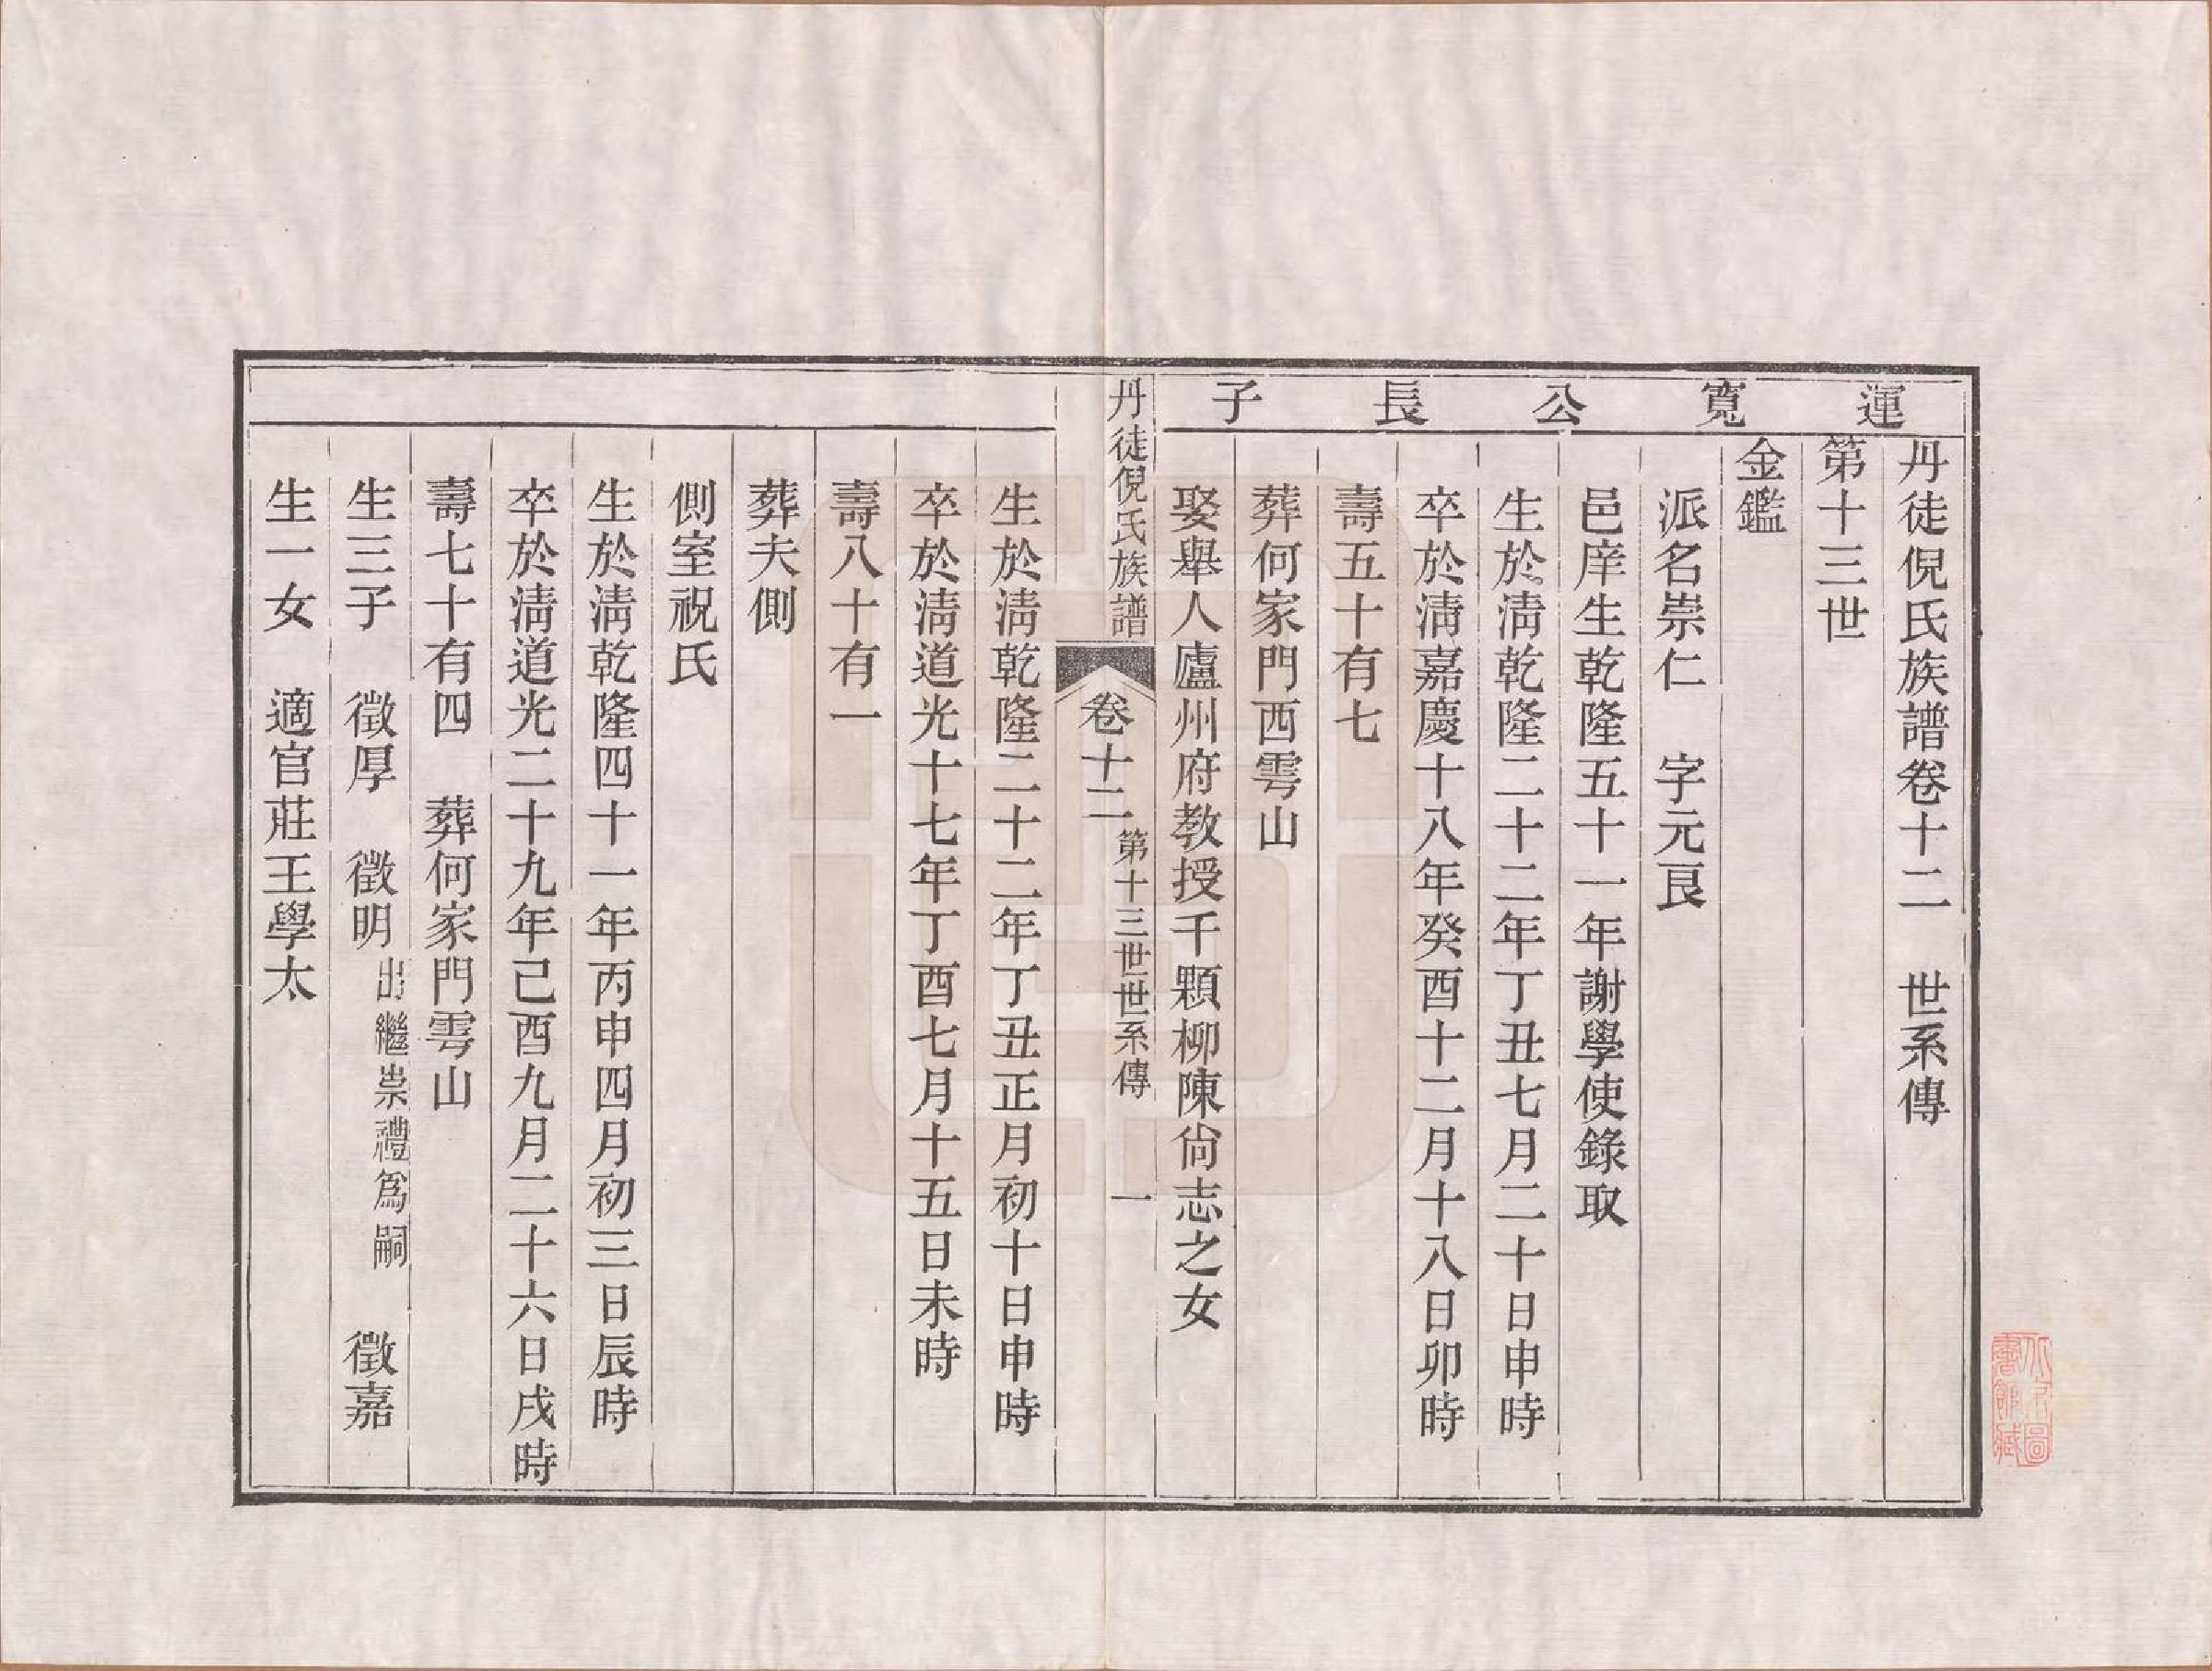 運寬公長子
丹徒倪氏族譜卷十二　世系傳
第十三世
金鑑
派名崇仁　字元艮
邑庠生乾隆五十一年謝學使錄取
生於淸乾隆二十二年丁丑七月二十日申時
卒於淸嘉慶十八年癸酉十二月十八日卯時
壽五十有七
葬何家門西雩山
娶舉人廬州府教授千顆柳陳尙志之女
丹徒倪氏族譜　卷十二　第十三世世系傳　一
生於淸乾隆二十二年丁丑正月初十日申時
卒於淸道光十七年丁酉七月十五日未時
壽八十有一
葬夫側
側室祝氏
生於淸乾隆四十一年丙申四月初三日辰時
卒於淸道光二十九年己酉九月二十六日戌時
壽七十有四　葬何家門雩山
生三子　徵厚　徵明出繼崇禮爲嗣　徵嘉
生一女　適官莊王學太